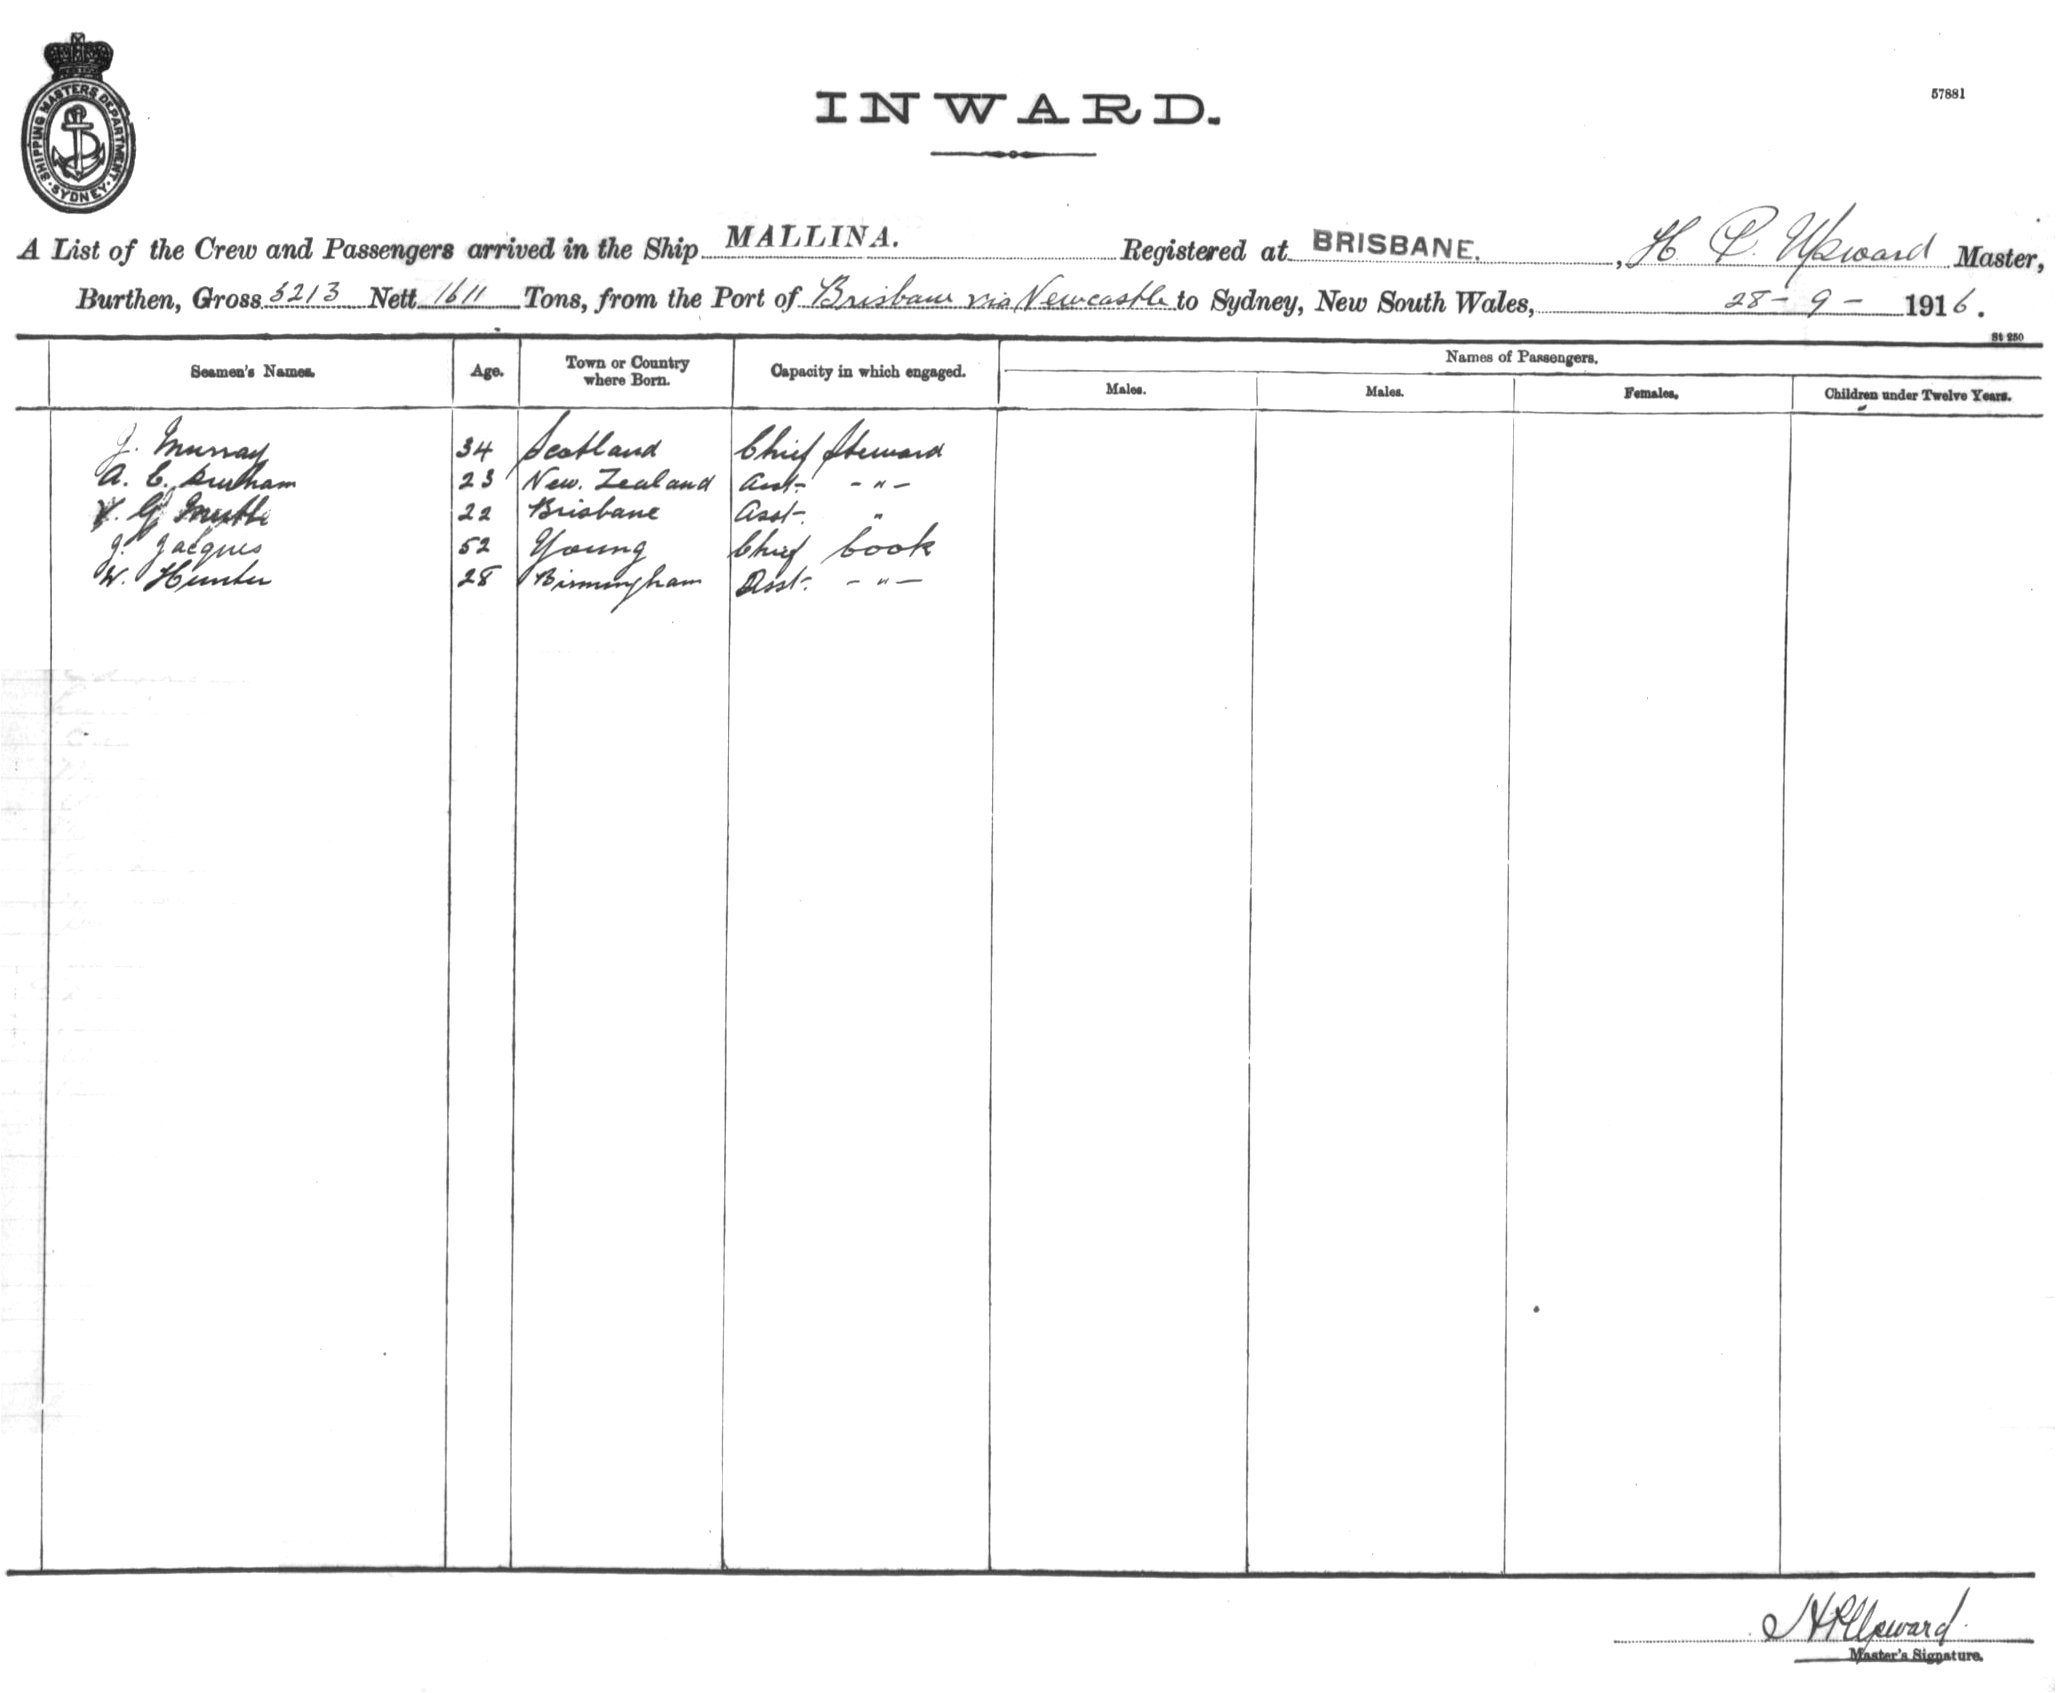 SHIPPING MASTERS DEPARTMENT
SYDNEY
INWARD.
57881
A List of the Crew and Passengers arrived in the Ship MALLINA. Registered at BRISBANE. , H. P. Upward Master,
Burthen, Gross 3213 Nett 1611 Tons, from the Port of Brisbane via Newcastle to Sydney, New South Wales, 28 - 9 - 1916.
St 250
Seamen's Names. Age. Town or Country where Born. Capacity in which engaged. Names of Passengers.
Males. Males. Females. Children under Twelve Years.
J. Murray 34 Scotland Chief Steward
A. E. 23 New. Zealand Asst. - " -
V. G. 22 Brisbane Asst. "
J. Jacques 52 Young Chief Cook
W. Hunter 28 Birmingham Asst. - " -
H P Upward
Master's Signature.